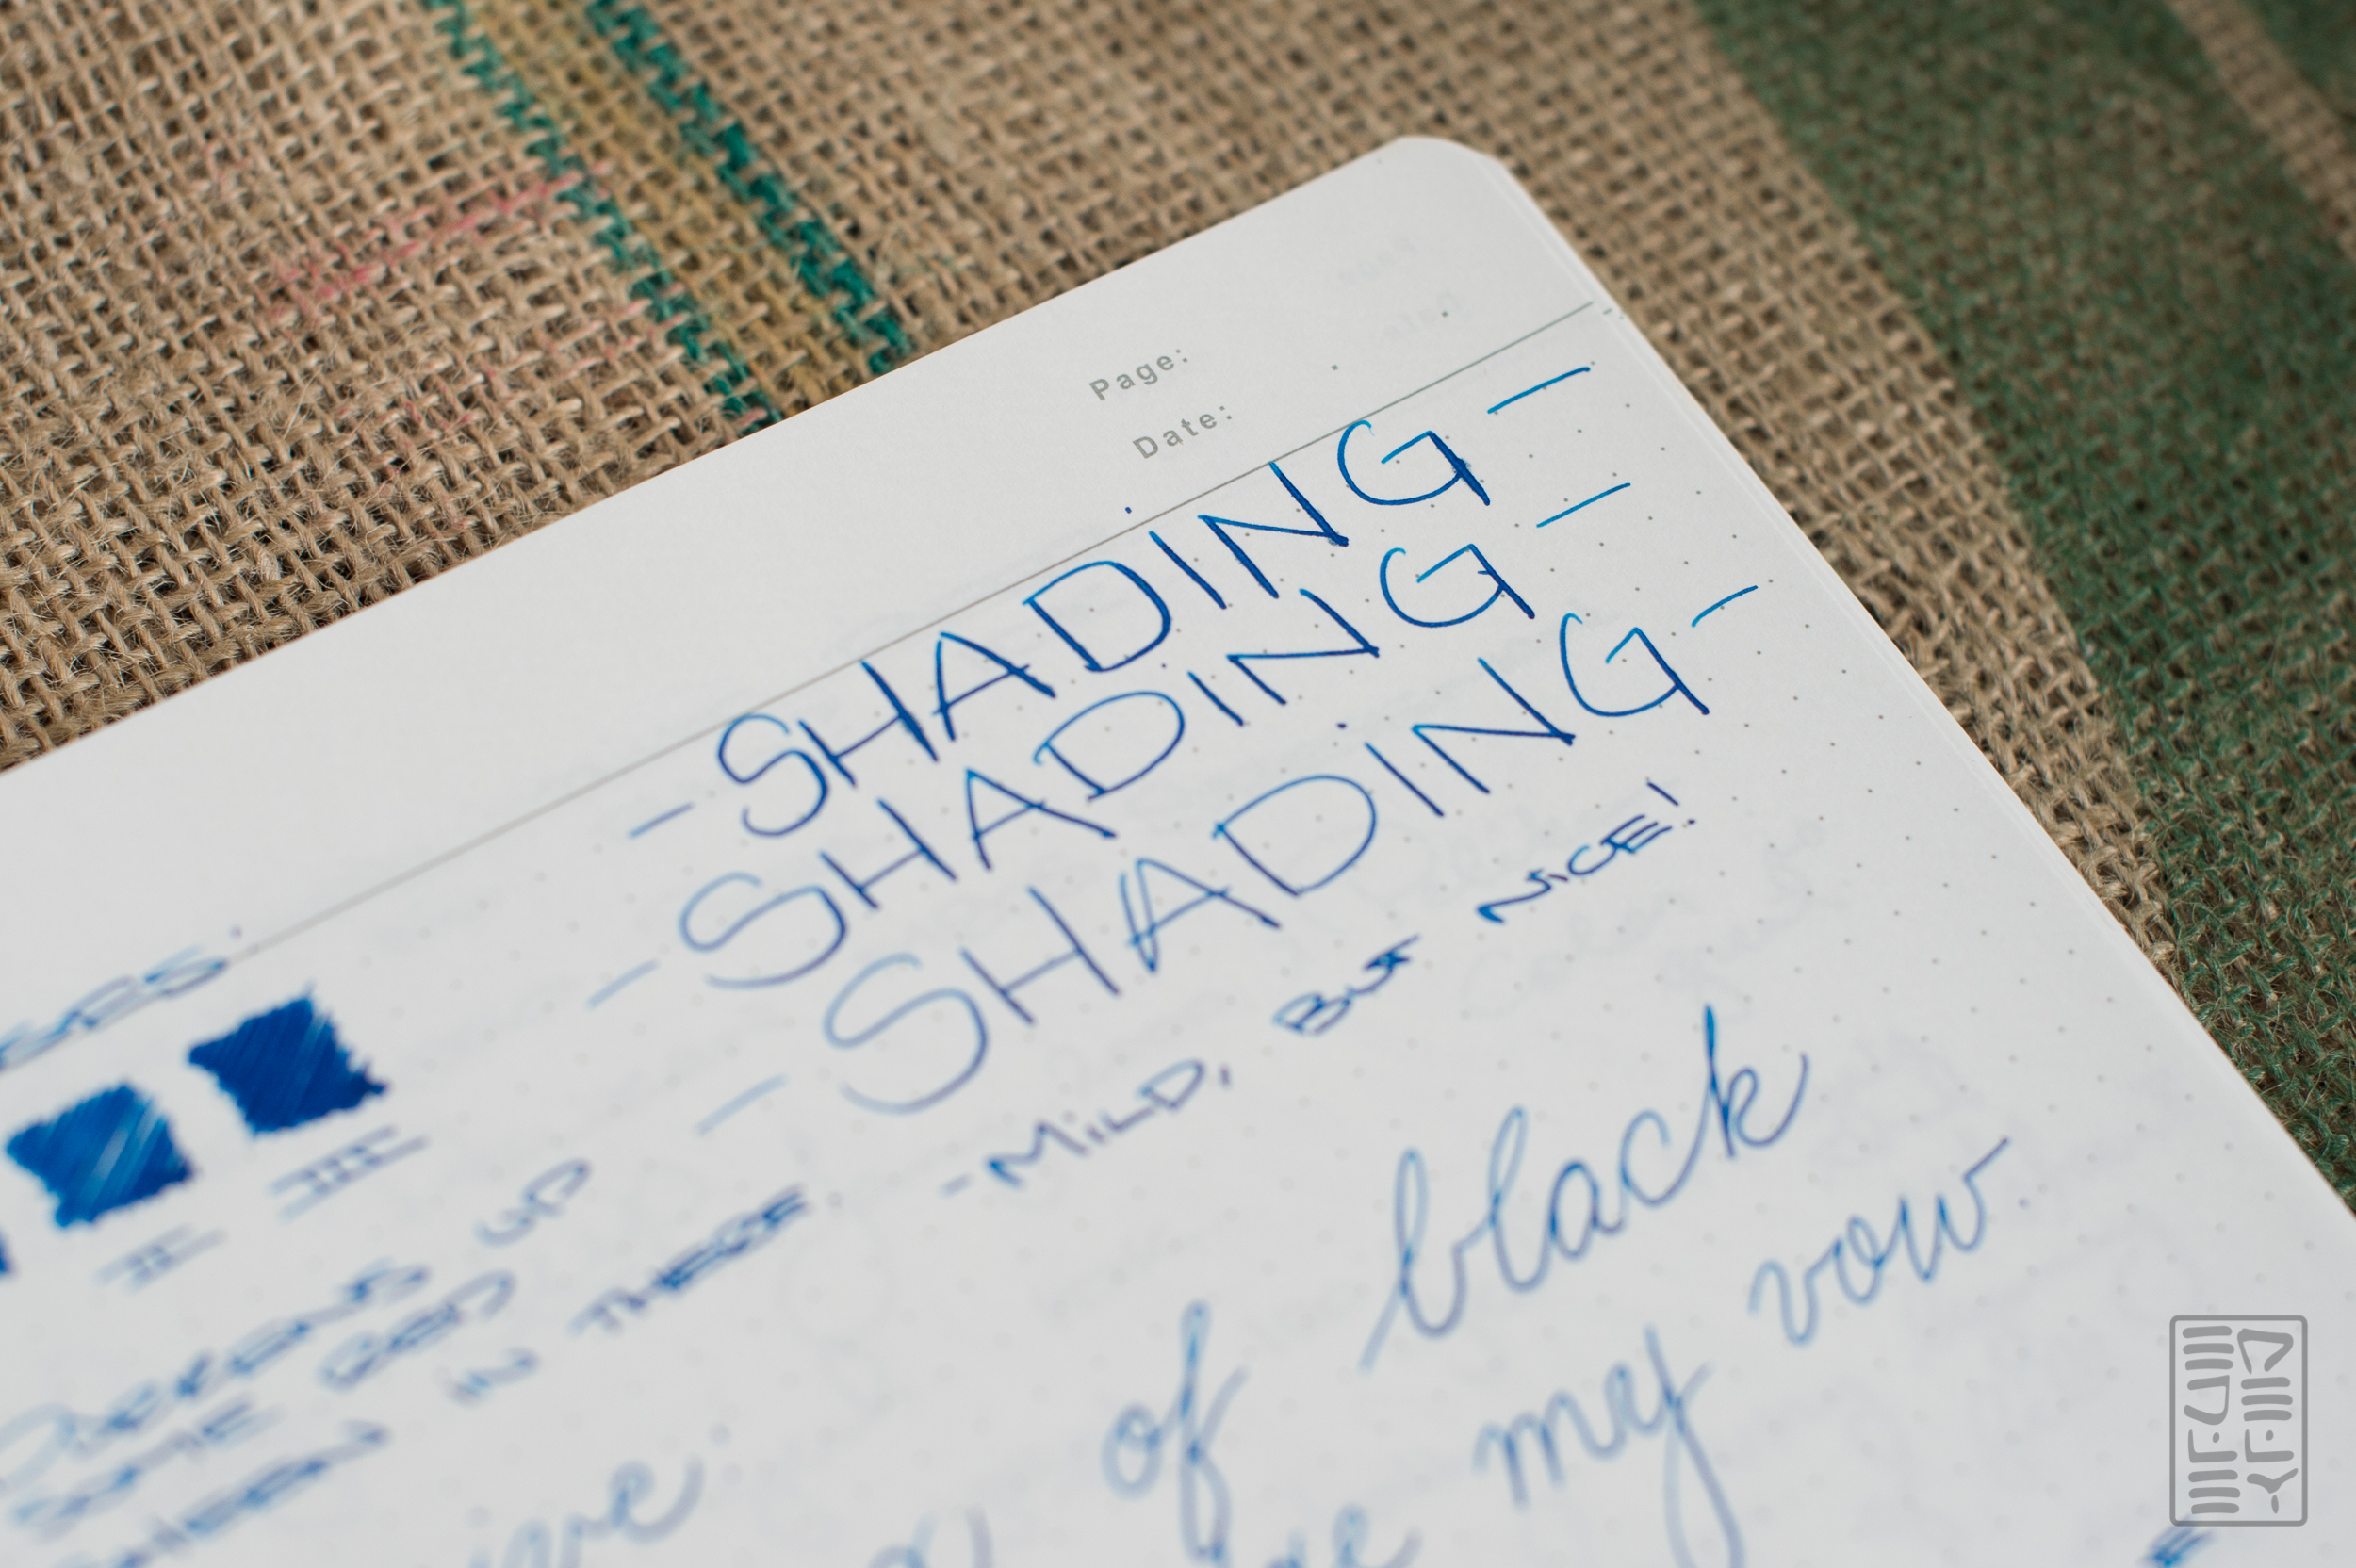 Page:
Date:
- SHADING -
- SHADING -
- SHADING -
- MILD, BUT NICE!
II III
UP
IN THESE.
of black
my vow.